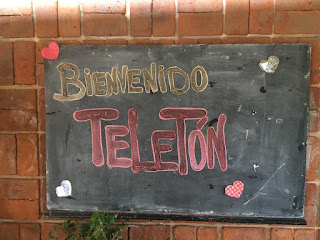 BIENVENIDO
TELETÓN